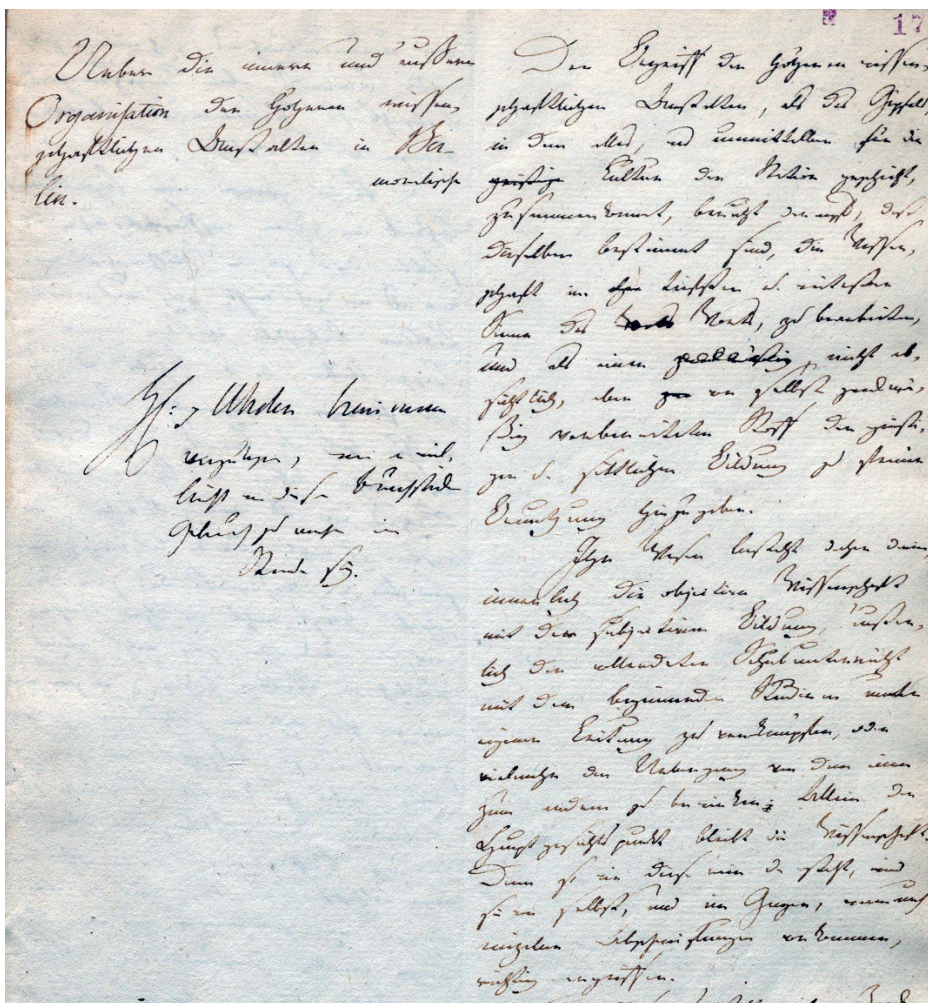 17
Ueber die innere und äußere
Organisation der höheren wissen-
schaftlichen Anstalten in Ber-
lin.
Der Begriff der höheren wissen-
schaftlichen Anstalten, als des Gipfels,
in dem alles, was unmittelbar für die
moralische
geistige Kultur der Nation geschieht,
zusammenkommt, beruht darauf, daß
dieselben bestimmt sind, die Wissen-
schaft im tiefsten u. weitesten
Sinne des Worts, zu bearbeiten,
und als einen nicht ab-
sichtlich, aber von selbst zweckmä-
ßig vorbereiteten Stoff der geisti-
gen u. sittlichen Bildung zu seiner
Benutzung hinzugeben.
Ihr Wesen besteht daher darin,
innerlich die objective Wissenschaft
mit der subjectiven Bildung, äußer-
lich den vollendeten Schulunterricht
mit dem beginnenden Studium unter
eigener Leitung zu verknüpfen, oder
vielmehr den Uebergang von dem einen
zum andern zu bewirken; Allein der
Hauptgesichtspunkt bleibt die Wissenschaft.
Denn so wie diese rein da steht, wird
sie von selbst, und im Ganzen, wenn auch
einzelne Abschweifungen vorkommen,
richtig ergriffen.
H: Uhden